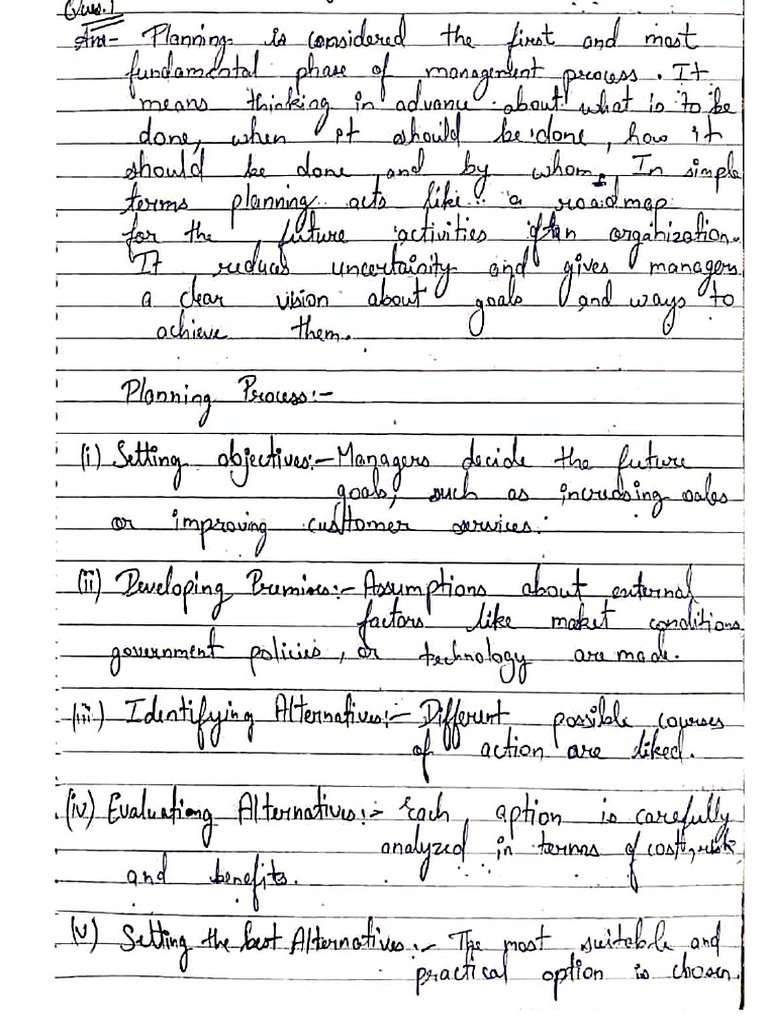 (Ques.1
Ans- Planning is considered the first and most
fundamental phase of management process. It
means thinking in advance about what is to be
done, when it should be done, how it
should be done and by whom. In simple
terms planning acts like a roadmap
for the future activities of an organization.
It reduces uncertainity and gives managers
a clear vision about goals and ways to
achieve them.
Planning Process:-
(i) Setting objectives:- Managers decide the future
goals, such as increasing sales
or improving customer services.
(ii) Developing Premises:- Assumptions about external
factors like maket conditions
government policies, or technology are made.
(iii) Identifying Alternatives:- Different possible courses
of action are liked.
(iv) Evaluationg Alternatives:- Each option is carefully
analyzed in terms of cost, risk
and benefits.
(v) Setting the best Alternatives:- The most suitable and
practical option is chosen.